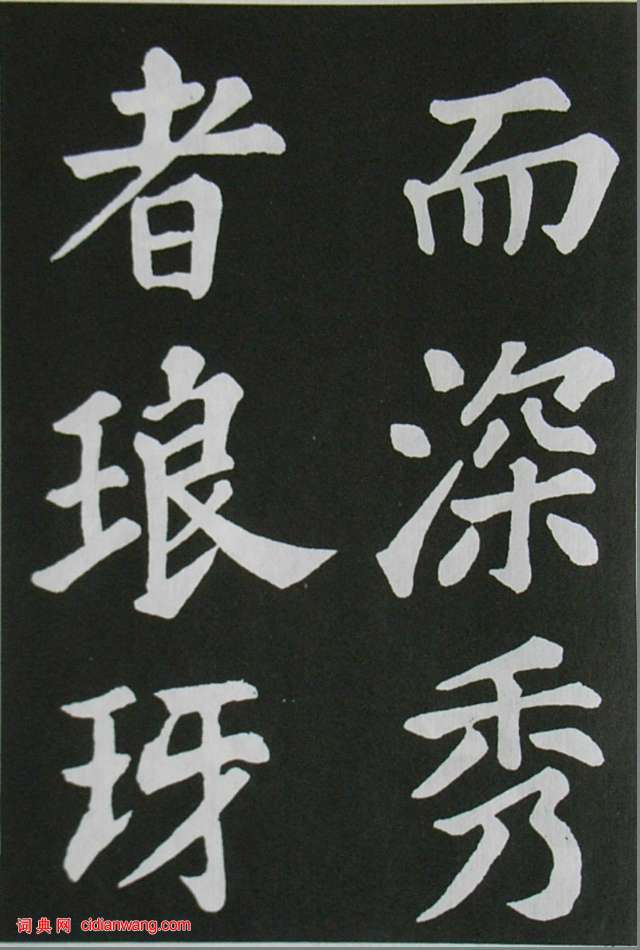 而深秀
者琅玡
词典网 cidianwang.com